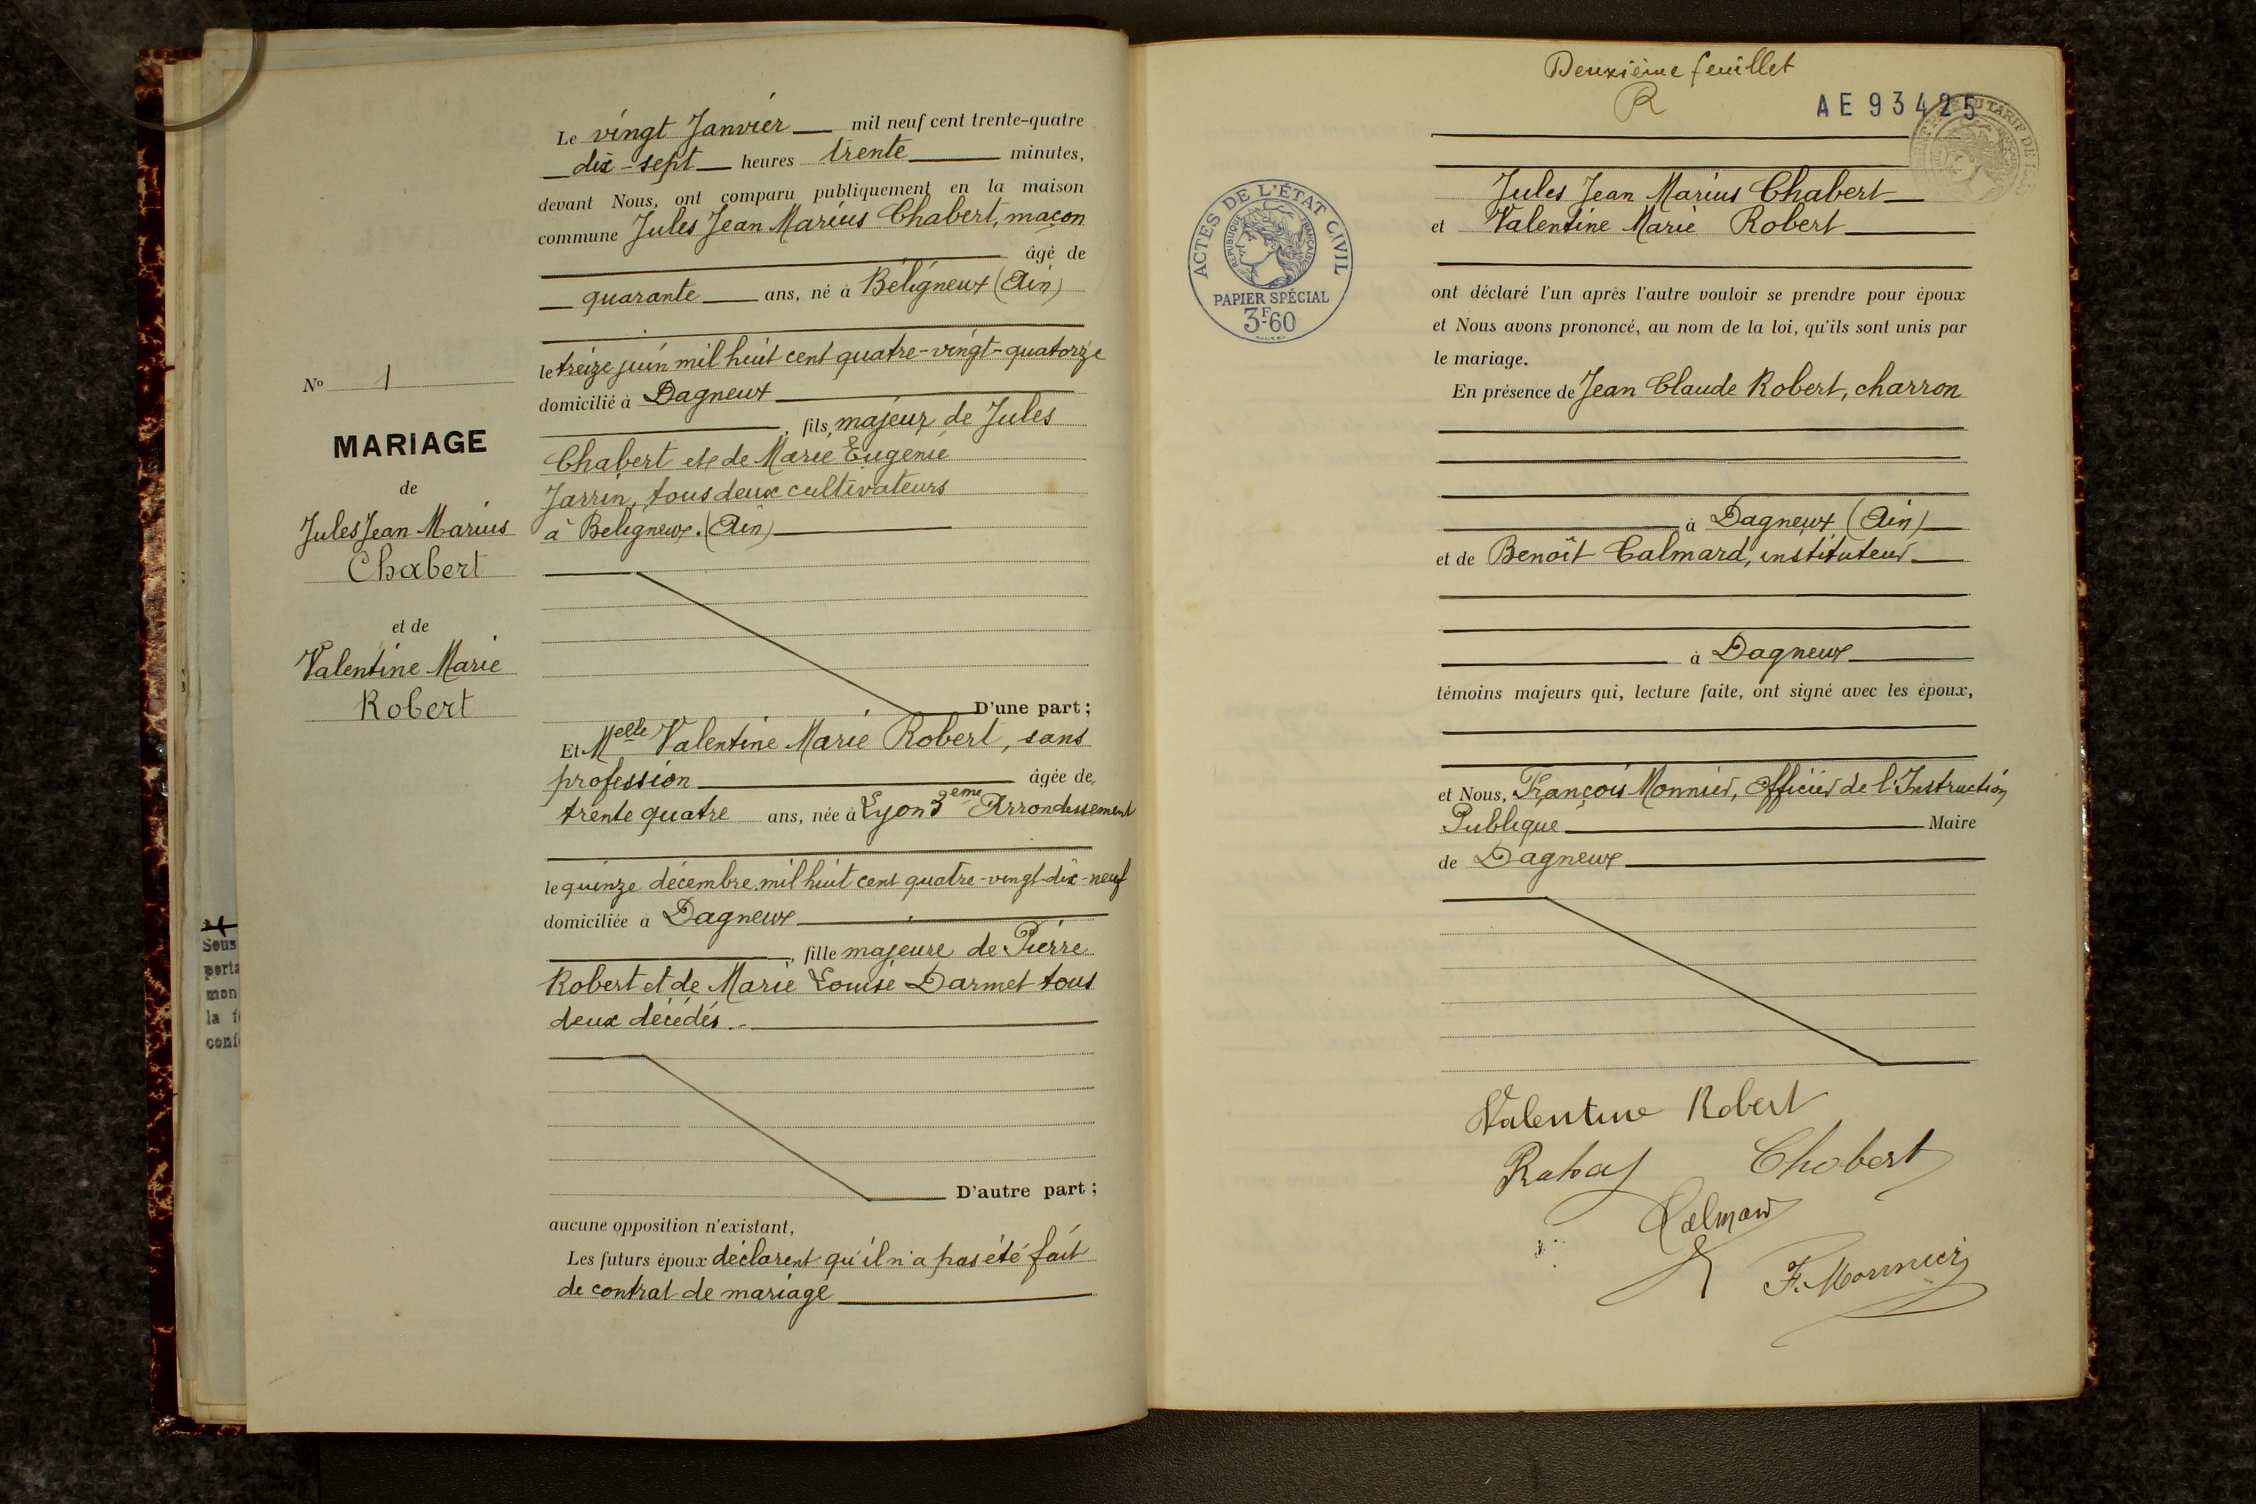 Le vingt Janvier mil neuf cent trente-quatre
dix-sept heures trente minutes,
devant Nous, ont comparu publiquement en la maison
commune Jules Jean Marius Chabert, maçon
âgé de
quarante ans, né à Béligneux (Ain)
le treize juin mil huit cent quatre-vingt-quatorze
domicilié à Dagneux
, fils majeur de Jules
Chabert et de Marie Eugénie
Jarrin, tous deux cultivateurs
à Béligneux. (Ain)
D'une part ;
Et Melle Valentine Marie Robert, sans
profession âgée de
trente quatre ans, née à Lyon 3ème Arrondissement
le quinze décembre mil huit cent quatre-vingt-dix-neuf
domiciliée a Dagneux
, fille majeure de Pierre
Robert et de Marie Louise Darmet tous
deux décédés.-
D'autre part ;
aucune opposition n'existant,
Les futurs époux déclarent qu'il n'a pas été fait
de contrat de mariage
No 1
MARIAGE
de
Jules Jean Marius
Chabert
et de
Valentine Marie
Robert
Sous
porta
mon
la f
conf
Deuxième feuillet
R
AE 93425
ACTES DE L'ÉTAT CIVIL
RÉPUBLIQUE FRANÇAISE
PAPIER SPÉCIAL
3F-60
Jules Jean Marius Chabert
et Valentine Marie Robert
ont déclaré l'un après l'autre vouloir se prendre pour époux
et Nous avons prononcé, au nom de la loi, qu'ils sont unis par
le mariage.
En présence de Jean Claude Robert, charron
à Dagneux (Ain)
et de Benoît Calmard, instituteur
à Dagneux
témoins majeurs qui, lecture faite, ont signé avec les époux,
et Nous, François Monnier, Officier de l'Instruction
Publique Maire
de Dagneux
Valentine Robert
Chabert
Calmard
F. Monnier